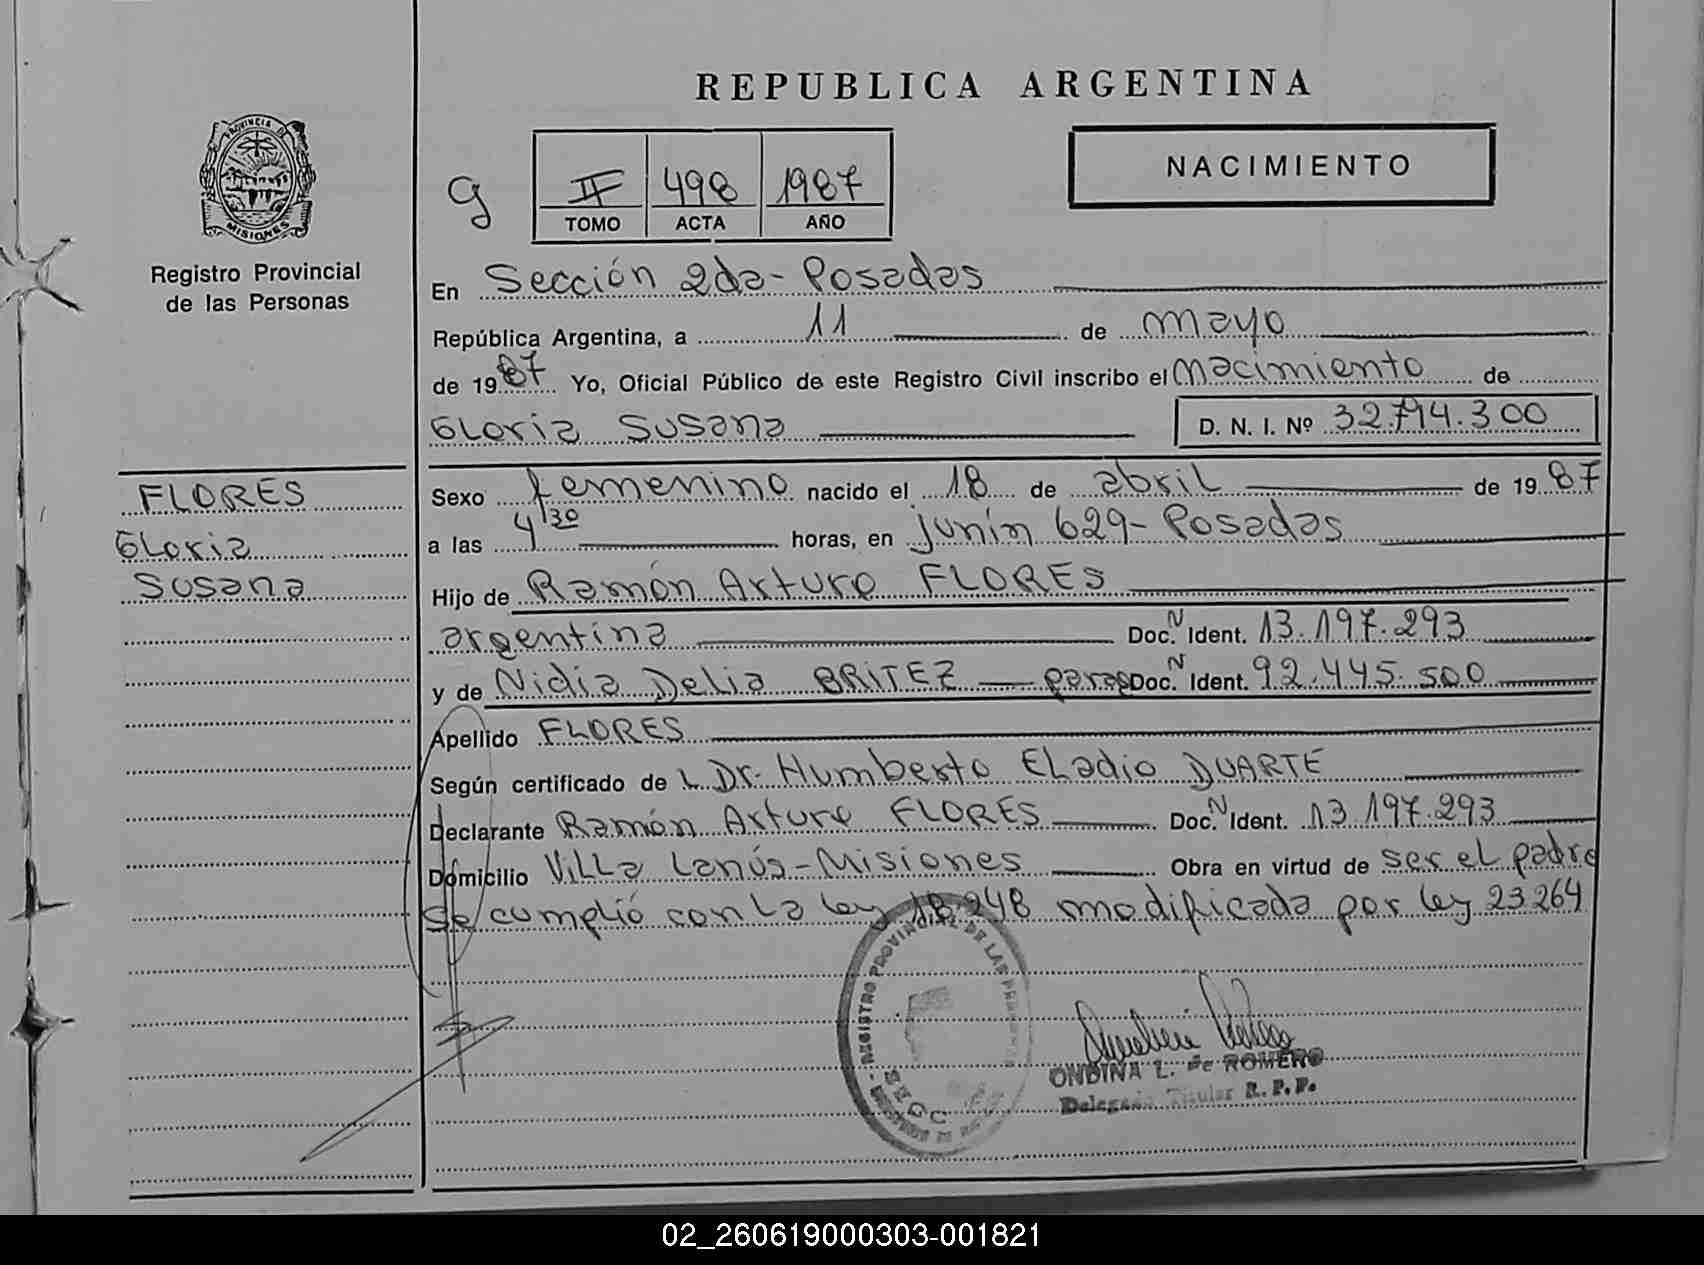 REPUBLICA ARGENTINA
PROVINCIA DE
MISIONES
Registro Provincial
de las Personas
g
II 498 1987
TOMO ACTA AÑO
NACIMIENTO
En Sección 2da - Posadas
República Argentina, a 11 de mayo
de 1987 Yo, Oficial Público de este Registro Civil inscribo el nacimiento de
Gloria Susana
D. N. I. Nº 32.794.300
FLORES
Gloria
Susana
Sexo femenino nacido el 18 de abril de 1987
a las 4,30 horas, en junín 629 - Posadas
Hijo de Ramón Arturo FLORES
argentina Doc. N Ident. 13.197.293
y de Nidia Delia BRITEZ parag Doc. N Ident. 92.445.500
Apellido FLORES
Según certificado de L Dr. Humberto Eladio DUARTE
Declarante Ramón Arturo FLORES Doc. N Ident. 13.197.293
Domicilio Villa Lanús - Misiones Obra en virtud de ser el padre
Se cumplió con la ley 18.248 modificada por ley 23264
REGISTRO PROVINCIAL DE LAS PERSONAS
ONDINA L. de ROMERO
Delegada Titular R. P. P.
02_260619000303-001821